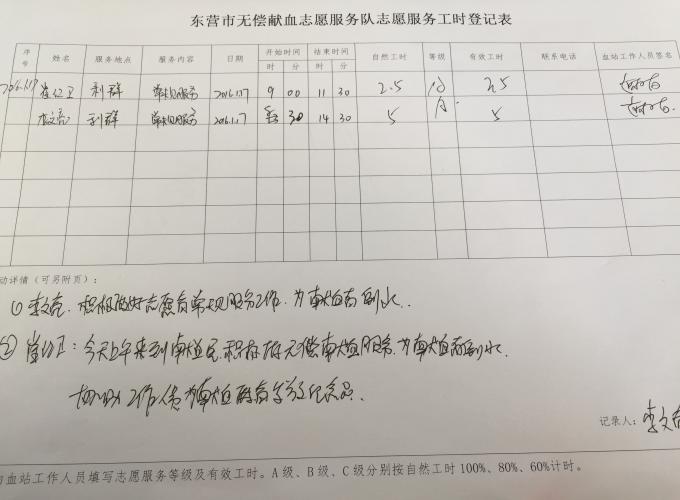 东营市无偿献血志愿服务队志愿服务工时登记表
序号 姓名 服务地点 服务内容 日期 开始时间 结束时间 自然工时 等级 有效工时 联系电话 血站工作人员签名
时 分 时 分
2016.1.17 崔仁卫 利群 常规服务 2016.1.17 9 00 11 30 2.5 2.5
李文亮 利群 常规服务 2016.1.17 30 14 30 5 A 5
动详情（可另附页）：
① 李文亮. 积极做好志愿者常规服务工作. 为献血者倒水.
② 崔仁卫: 今天上午来到献血屋, 积极 无偿献血服务. 为献血者倒水.
协助工作人员为献血者 纪念品.
记录人：李文亮
血站工作人员填写志愿服务等级及有效工时。A级、B级、C级分别按自然工时100%、80%、60%计时。